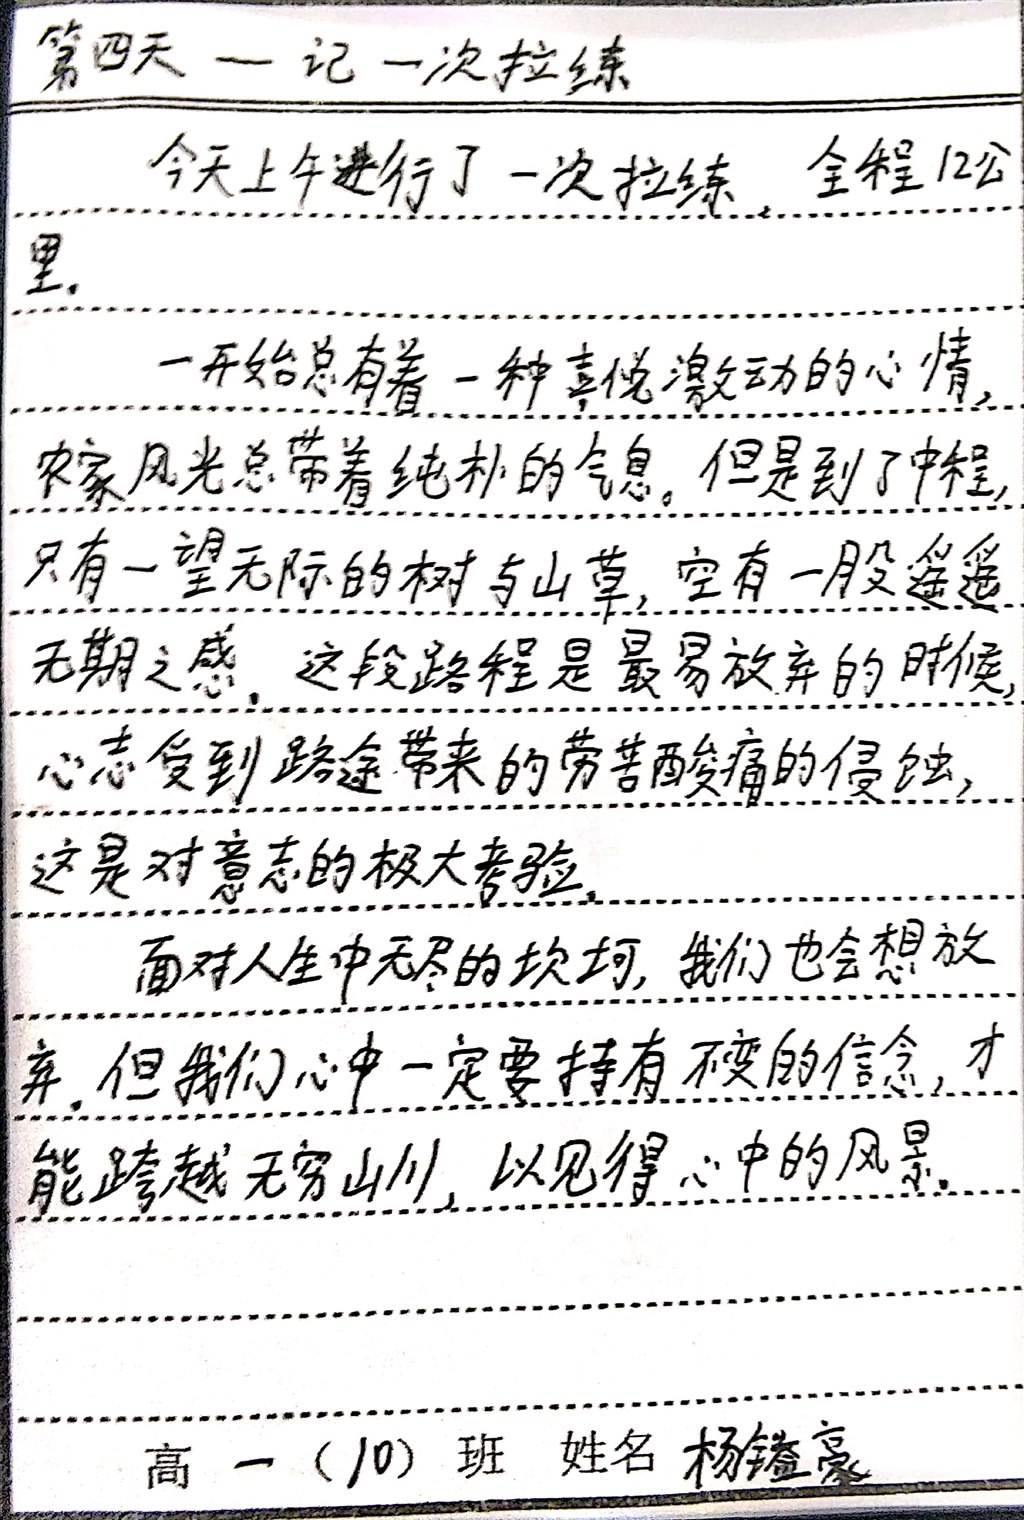 第四天 — 记一次拉练
今天上午进行了一次拉练，全程12公
里.
一开始总有着一种喜悦激动的心情，
农家风光总带着纯朴的气息。但是到了中程，
只有一望无际的树与山草，空有一股遥遥
无期之感.这段路程是最易放弃的时候，
心志受到路途带来的劳苦酸痛的侵蚀，
这是对意志的极大考验.
面对人生中无尽的坎坷，我们也会想放
弃.但我们心中一定要持有不变的信念，才
能跨越无穷山川，以见得心中的风景.
高一（10）班 姓名 杨镒豪